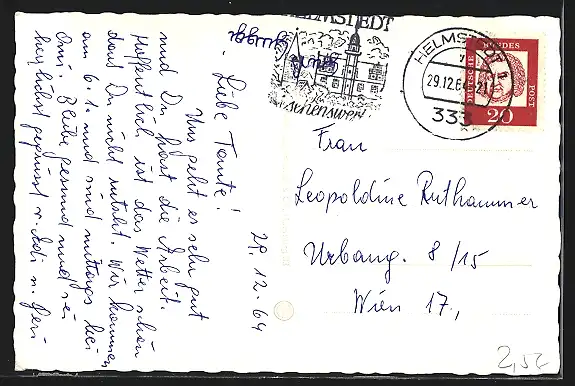 HELMSTEDT
sehenswert
HELMSTEDT
29.12.64-21
333
DEUTSCHE BUNDES POST
20
29. 12. 64
Liebe Tante!
Uns geht es sehr gut
und Du hast die Arbeit.
Hoffentlich ist das Wetter schön
daß Du nicht rutscht. Wir kommen
am 6. 1. und sind mittags bei
Omi. Bleibe gesund und sei
herzlichst gegrüsst v. Adi u. Geri
Frau
Leopoldine Ruthammer
Urbang. 8/15
Wien 17,
2,50